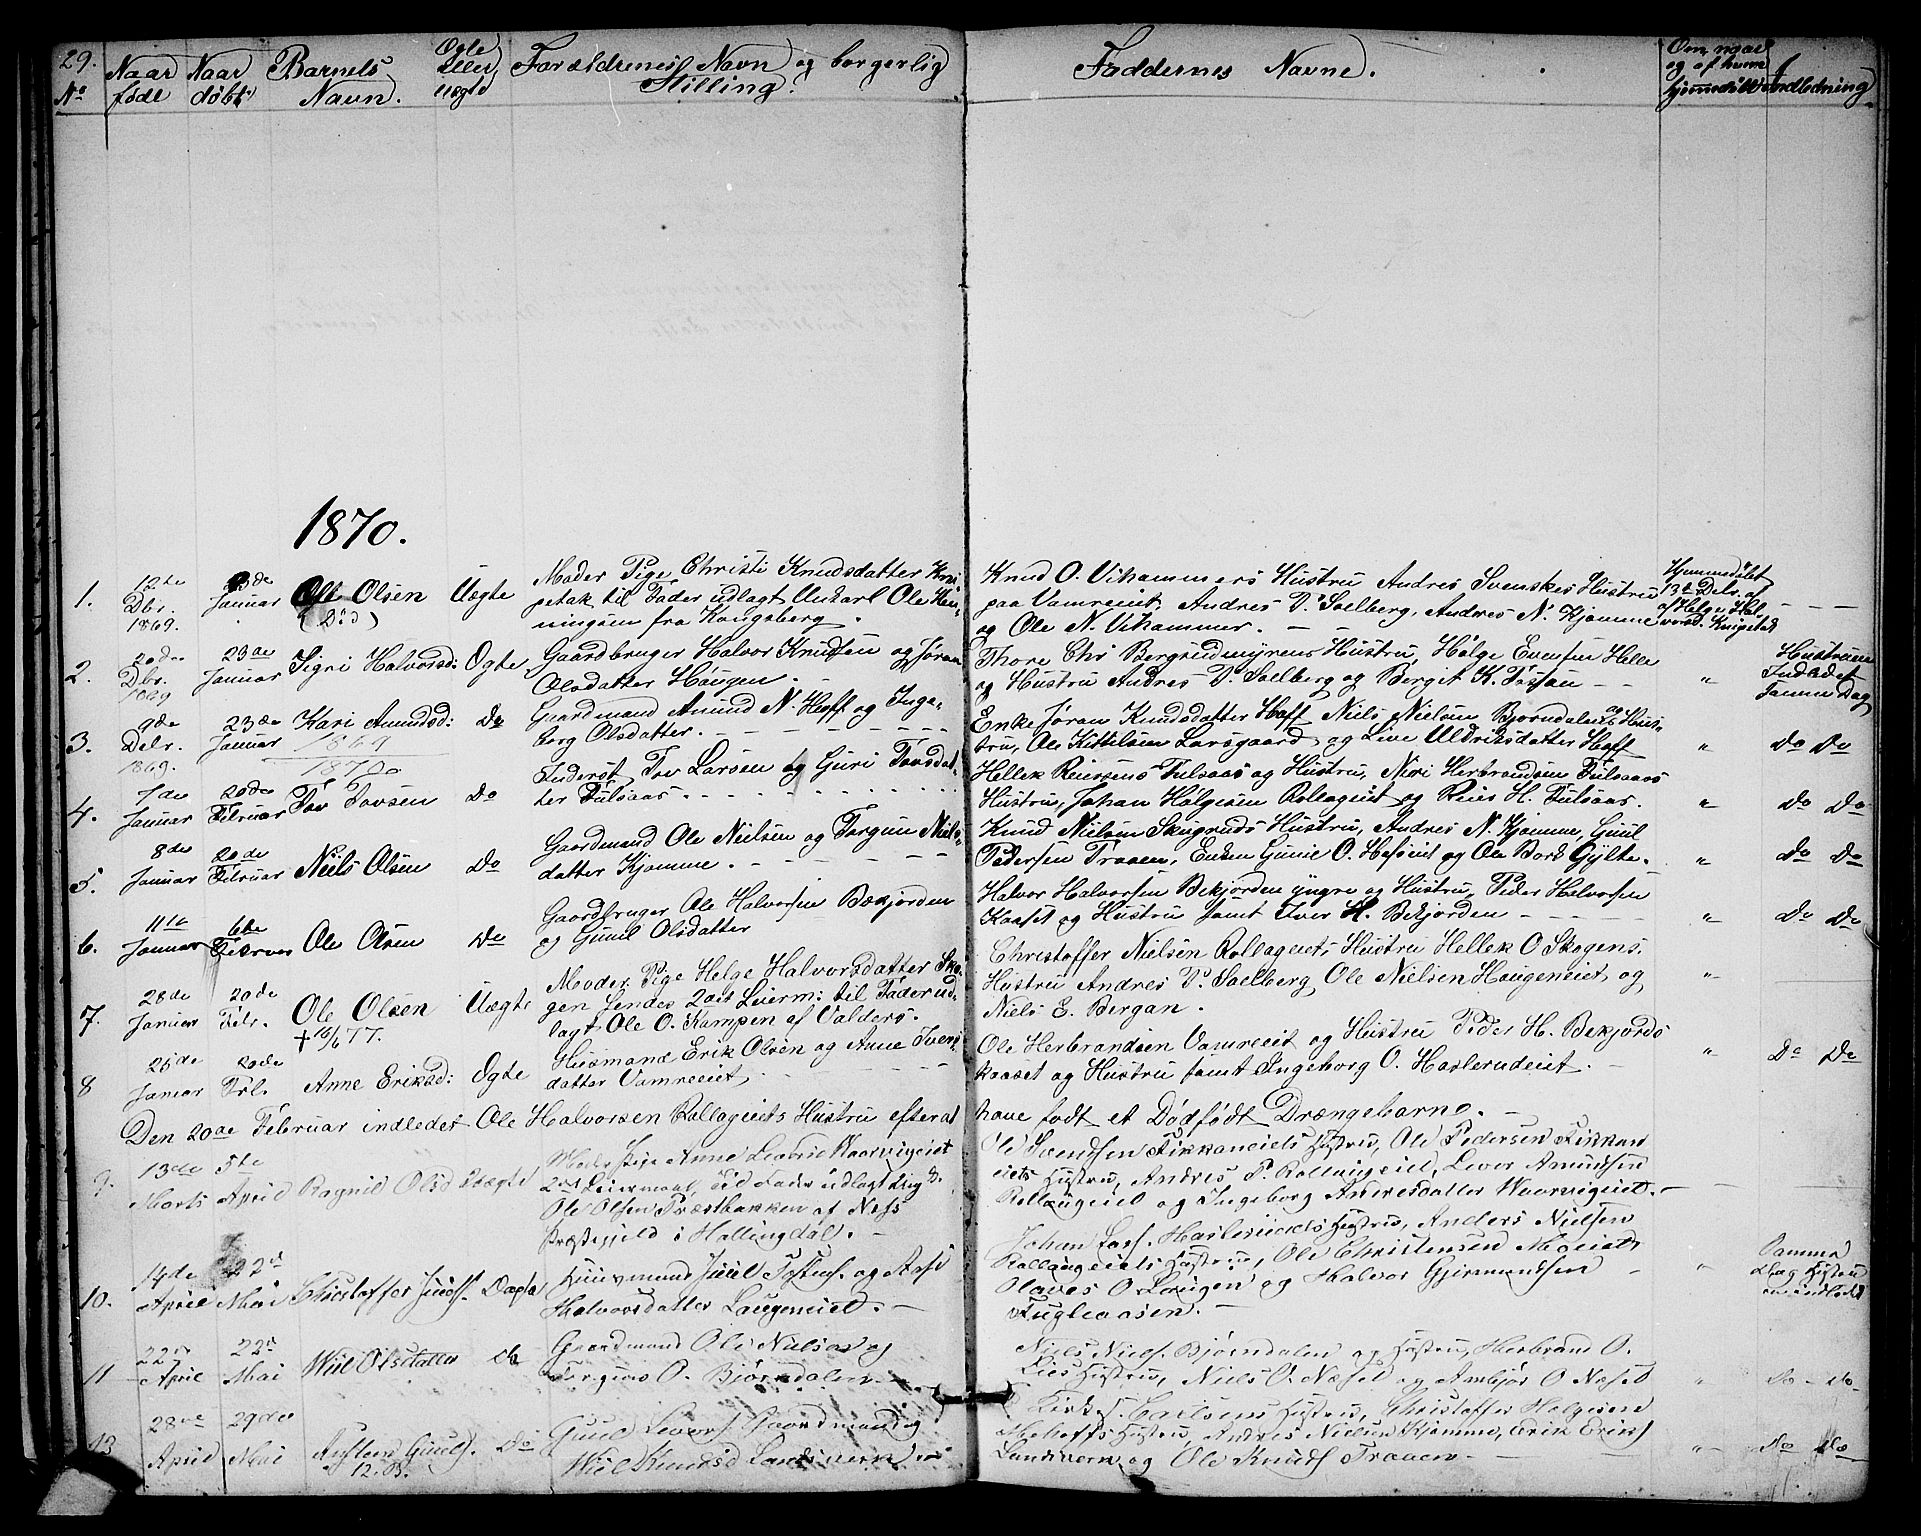 29.
No
Naar
født
Naar
døbt
Barnets
Navn.
Ægte
eller
Uægte
Forældrenes Navn og borgerlig
Stilling.
Faddernes Navne.
Om, naar
og af hvem
hjemmedøbt
Indledning
1870.
1.
12te
Dbr.
1869.
23de
Januar
Ole Olsen
Uægte
Moder Pige Christi Knudsdatter Kni-
petak til Fader udlagt Ole Hen-
ningsen fra Kongsberg.
Knud O. Vihammers Hustru Andres Svenskes Hustru
paa Vamreeiet, Andres P. Soelberg, Andres N. Kjomme
og Ole N. Vihammer.
Hjemmedøbt
13de Debr. af
Helge Hal-
vorsd. Knipetak
2.
20de
Dbr.
1869
23de
Januar
Sigri Halvorsd:
Ægte
Gaardbruger Halvor Knudsen og Jøran
Olsdatter Haugen.
Thore Chr Bergrudmyrens Hustru, Helge Evensen Helle
og Hustru Andres P. Soelberg og Bergit K. Fossan
"
Hustruen
Indledet
samme Dag
3.
9de
Debr.
1869.
23de
Januar
Kari Amundsd:
1869
Do
Gaardmand Amund N. Hoff og Inge-
borg Olsdatter.
Enke Jøran Knudsdatter Hoff Niels Nielsen Bjørndalen og Hus-
tru, Ole Kittilsen Larsgaard og Live Uldriksdatter Hoff
"
Do Do
1870
4.
7de
Januar
20de
Februar
Tov Tovsen
Do
Inderst Tov Larsen og Guri Tovsdat-
ter Fulsaas.
Hellek Reiersens Fulsaas og Hustru, Niri Herbrandsen Fulsaas
Hustru, Johan Helgesen Rollageiet og Reier H. Fulsaas.
"
Do Do
5.
8de
Januar
20de
Februar
Niels Olsen
Do
Gaardmand Ole Nielsen og Torgun Niels-
datter Kjomme.
Knud Nielsen Skugruds Hustru, Andres N. Kjomme, Guul
Pedersen Traaen, Enken Gunil O. og Ole Bork Gylte.
"
Do Do
6.
11te
Januar
6te
Februar
Ole Olsen
Do
Gaardbruger Ole Halvorsen Bækjorden
og Gunil Olsdatter
Halvor Halvorsen Bekjorden yngre og Hustru, Peder Halvorsen
Kaaset og Hustru samt Iver H. Bekjorden
"
Do Do
7.
28de
Januar
20de
Febr.
Ole Olsen
+ 16/6 77.
Uægte
Moder Pige Helge Halvorsdatter Sko-
gen hendes 2det Leierm: til Fader ud-
lagt Ole O. Kampen af Valders.
Christoffer Nielsen Rollageiets Hustru Hellek O Skogens
Hustru Andres P. Soelberg Ole Nielsen Haugeneiet, og
Niels E. Bergan.
"
8
25de
Januar
20de
Febr.
Anne Eriksd:
Ægte
Husmand Erik Olsen og Anne Ivers-
datter Vamreeiet
Ole Herbrandsen Vamreeiet og Hustru Peder H. Bekjords
kaaset og Hustru samt Ingeborg O. Haslerudeiet.
"
Do Do
Den 20de Februar indledet Ole Halvorsen Rollageiets Hustru efter at have født et Dødfødt Drængebarn.
9.
13de
Marts
5te
April
Ragnil Olsd
Uægte
Moder Pige Anne Waarvigeiet
2det Leiermaal, til Fader udlagt
Ole Olsen Præstbakken af Næss
Præstegjeld i Hallingdal.
Ole Svendsen Fikkaneiets Hustru, Ole Pedersen Fikkan
eiets Hustru, Andres P. Rollageiet, Lever Amundsen
Rollageiet og Ingeborg Andresdatter Waarvigeiet.
10.
14de
April
22de
Mai
Christoffer Juels.
Ægte
Huusmand Juel Tostens. og
Halvorsdatter Laugeneiet.
Johan Lars. Hasleruds Hustru, Anders Nielsen
Rollageiets Hustru, Ole Christensen Moeiet
Olaves O. Laugen og Halvor Gjermundsen
Fugleaasen.
"
Samme
Dag Hustru
en indledet
11
22de
April
22de
Mai
Wiil Olsdatter
do
Gaardmand Ole Nielsen og
Torguns O. Bjørndalen
Niels Niels. Bjørndalen og Hustru, Herbrand O.
Lies Hustru, Niels O. Næset og Ambjør O Næset
"
do do
28de
April
29de
Mai
Austen Guuls.
12. 03.
Do
Guul Levors. Gaardmand og
Wiil Knudsd Landsverk
Hustru, Christoffer Helgesen
Mehoffs Hustru, Andres Nielsen Kjomme, Erik Eriks
Landsverk og Ole Knuds Traaen
"
Do Do